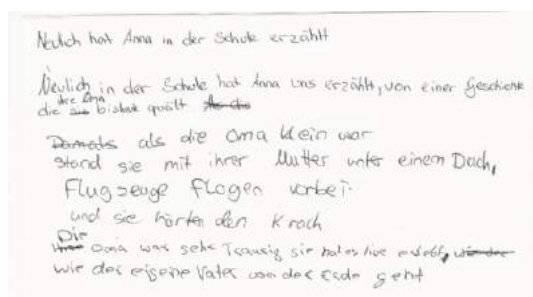 Neulich hat Anna in der Schule erzählt
Neulich in der Schule hat Anna uns erzählt, von einer Geschichte
die ihre Oma bis heute quält
Damals als die Oma klein war
stand sie mit ihrer Mutter unter einem Dach,
Flugzeuge flogen vorbei
und sie hörten den Krach
Die Oma war sehr Traurig sie hat es live erlebt,
wie der eigene Vater von der Erde geht